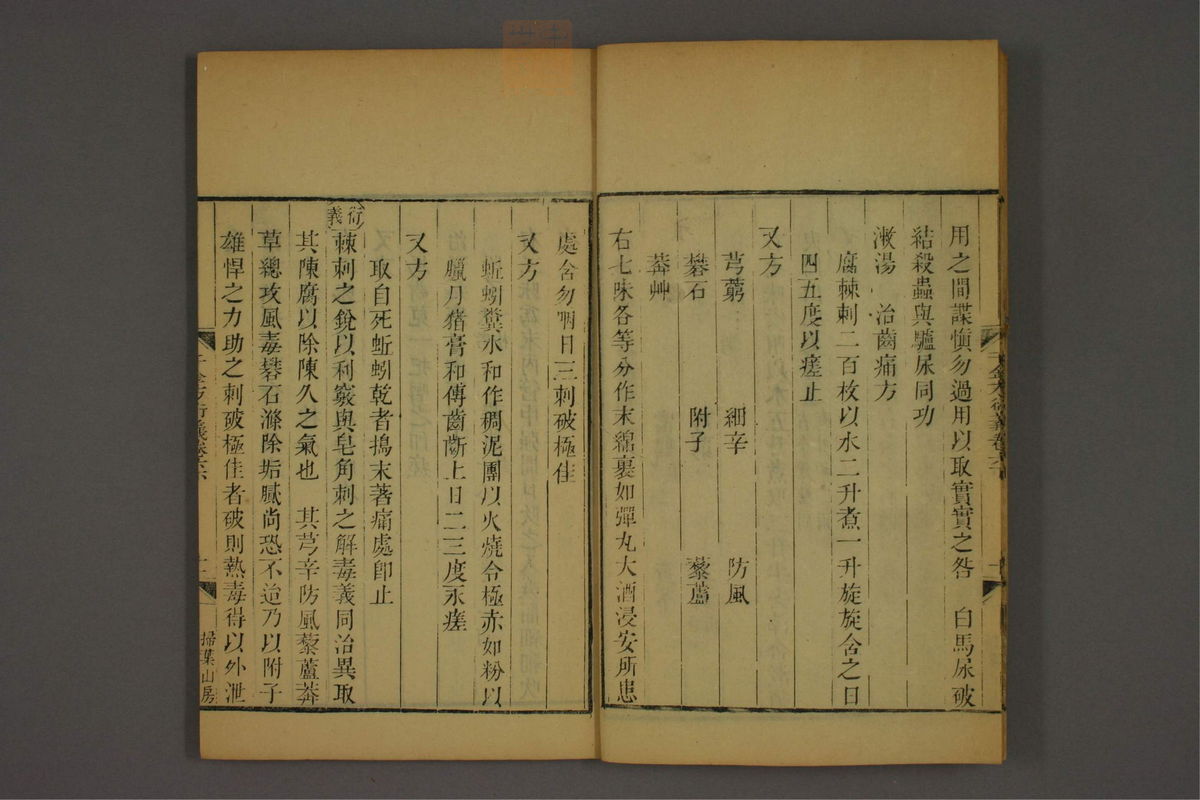 用之間諜愼勿過用以取實實之咎　白馬尿破
結殺蟲與驢尿同功
漱湯　治齒痛方
腐棘刺二百枚以水二升煮一升旋旋含之日
四五度以瘥止
又方
芎藭　細辛　防風
礬石　附子　藜蘆
莽艸
右七味各等分作末綿裹如彈丸大酒浸安所患
處含勿咽日三刺破極佳
又方
蚯蚓糞水和作稠泥團以火燒令極赤如粉以
臘月猪膏和傅齒齗上日二三度永瘥
又方
取自死蚯蚓乾者搗末著痛處卽止
衍義
棘刺之銳以利竅與皂角刺之解毒義同治異取
其陳腐以除陳久之氣也　其芎辛防風藜蘆莽
草總攻風毒礬石滌除垢膩尚恐不逮乃以附子
雄悍之力助之刺破極佳者破則熱毒得以外泄
千金方衍義卷六
掃葉山房